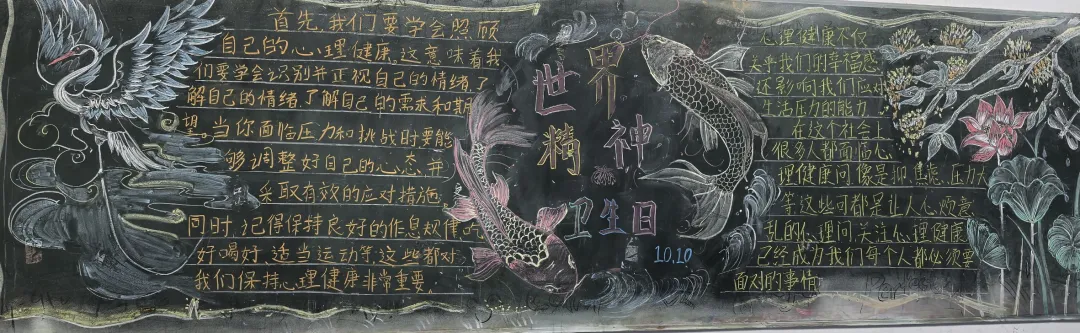 首先,我们要学会照顾
自己的心理健康.这意味着我
们要学会识别并正视自己的情绪了
解自己的情绪了解自己的需求和期
望。当你面临压力和挑战时要能
够调整好自己的心态.并
采取有效的应对措施。
同时,记得保持良好的作息规律吃
好喝好.适当运动等这些都对
我们保持心理健康非常重要.
世界
精神
卫生日
10.10
心理健康不仅
关乎我们的幸福感
还影响我们应对
生活压力的能力
在这个社会上
很多人都面临心
理健康问像是抑焦虑.压力大
等这些可都是让人心烦意
乱的心理问.关注心理健康
已经成为我们每个人都必须要
面对的事情